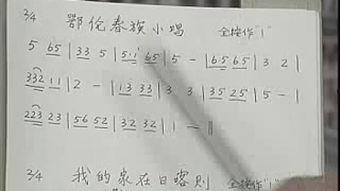 2/4 鄂伦春族小唱 全按作"1"
5 65 | 33 5 | 5·i 65 | 5 - | 6·5 65 | 3 2 |
332 11 | 2 - | 13 33 | 3 3 | 35 25 | 5 - |
223 23 | 56 52 | 32 32 | 1 - ‖
3/4 我的家在日喀则 全按作"1"